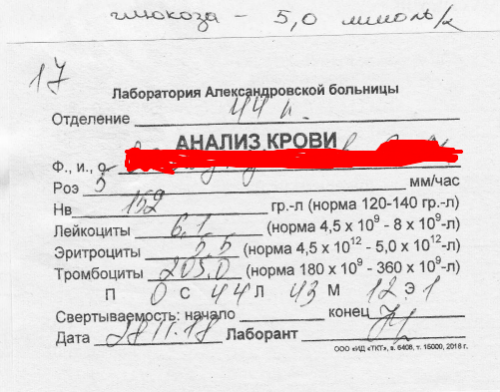 глюкоза - 5,0 ммоль/л
17
Лаборатория Александровской больницы
Отделение 44 п.
АНАЛИЗ КРОВИ
Ф., и., о
Роэ 5 мм/час
Нв 152 гр.-л (норма 120-140 гр.-л)
Лейкоциты 6,1 (норма 4,5 х 10⁹ - 8 х 10⁹-л)
Эритроциты 5,5 (норма 4,5 х 10¹² - 5,0 х 10¹²-л)
Тромбоциты 205,0 (норма 180 х 10⁹ - 360 х 10⁹-л)
П 0 С 44 Л 43 М 12 Э 1
Свертываемость: начало конец
Дата 28.11.18 Лаборант
ООО «ИД «ТКТ», з. 6408, т. 15000, 2018 г.